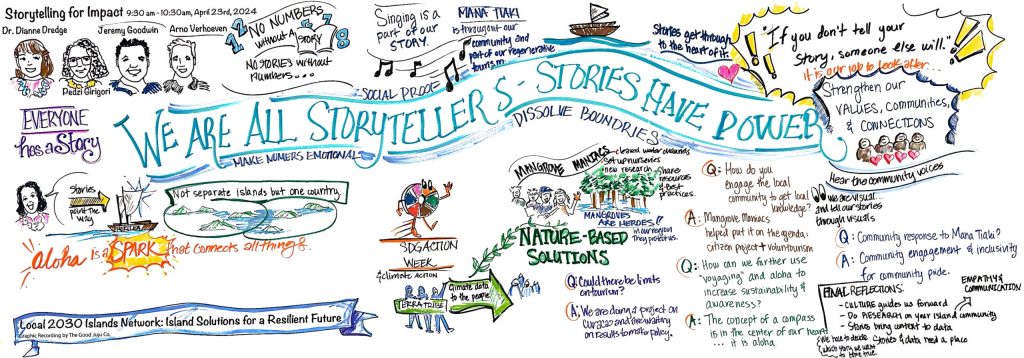 Storytelling for Impact 9:30 am - 10:30am, April 23rd, 2024
Dr. Dianne Dredge
Jeremy Goodwin
Arno Verhoeven
Pedzi Girigori
EVERYONE
has a Story
12
NO NUMBERS
without a STORY
78
NO STORIES without
numbers...
Singing is a
part of our
STORY.
MANA TIAKI
is throughout our
community and
part of our regenerative
tourism
Stories get through
to the heart of it.
"If you don't tell your
story, someone else will."
it is our job to look after...
Strengthen our
VALUES, Communities,
& CONNECTIONS
SOCIAL PROOF
WE ARE ALL STORYTELLERS - STORIES HAVE POWER
MAKE NUMERS EMOTIONAL
DISSOLVE BOUNDRIES
Hear the community voices
We are visual...
and tell our stories
through visuals
Stories
point the
way
Not separate islands but one country
aloha is a SPARK that connects all things.
SDG ACTION
WEEK
& climate ACTION
TERRATRIBE
Climate data
to the people
MANGROVE MANIACS
cleaned water channels
Set up nurseries
new research
Share
resources
& best
practices.
MANGROVES
ARE HEROES!!
in our region
they protect us.
NATURE-BASED
SOLUTIONS
Q: Could there be limits
on tourism?
A: We are doing a project on
Curacao and are waiting
on results to motor policy.
Q: How do you
engage the local
community to get local
knowledge?
A: Mangrove Maniacs
helped put it on the agenda.
citizen project + voluntourism
Q: How can we farther use
"voyaging" and aloha to
increase sustainability &
awareness?
A: The concept of a compass
is in the center of our heart
... it is aloha
Q: Community response to Mana Tiaki?
A: Community engagement & inclusivity
for community pride.
EMPATHY &
COMMUNICATION
FINAL REFLECTIONS:
- CULTURE guides us forward
- Do RESEARCH on your island community
- Stories bring context to data
Stories & data need a place
We have to decide
which story we want
to come true.
Local 2030 Islands Network: Island Solutions for a Resilient Future
Graphic Recording by The Good Juju Co.